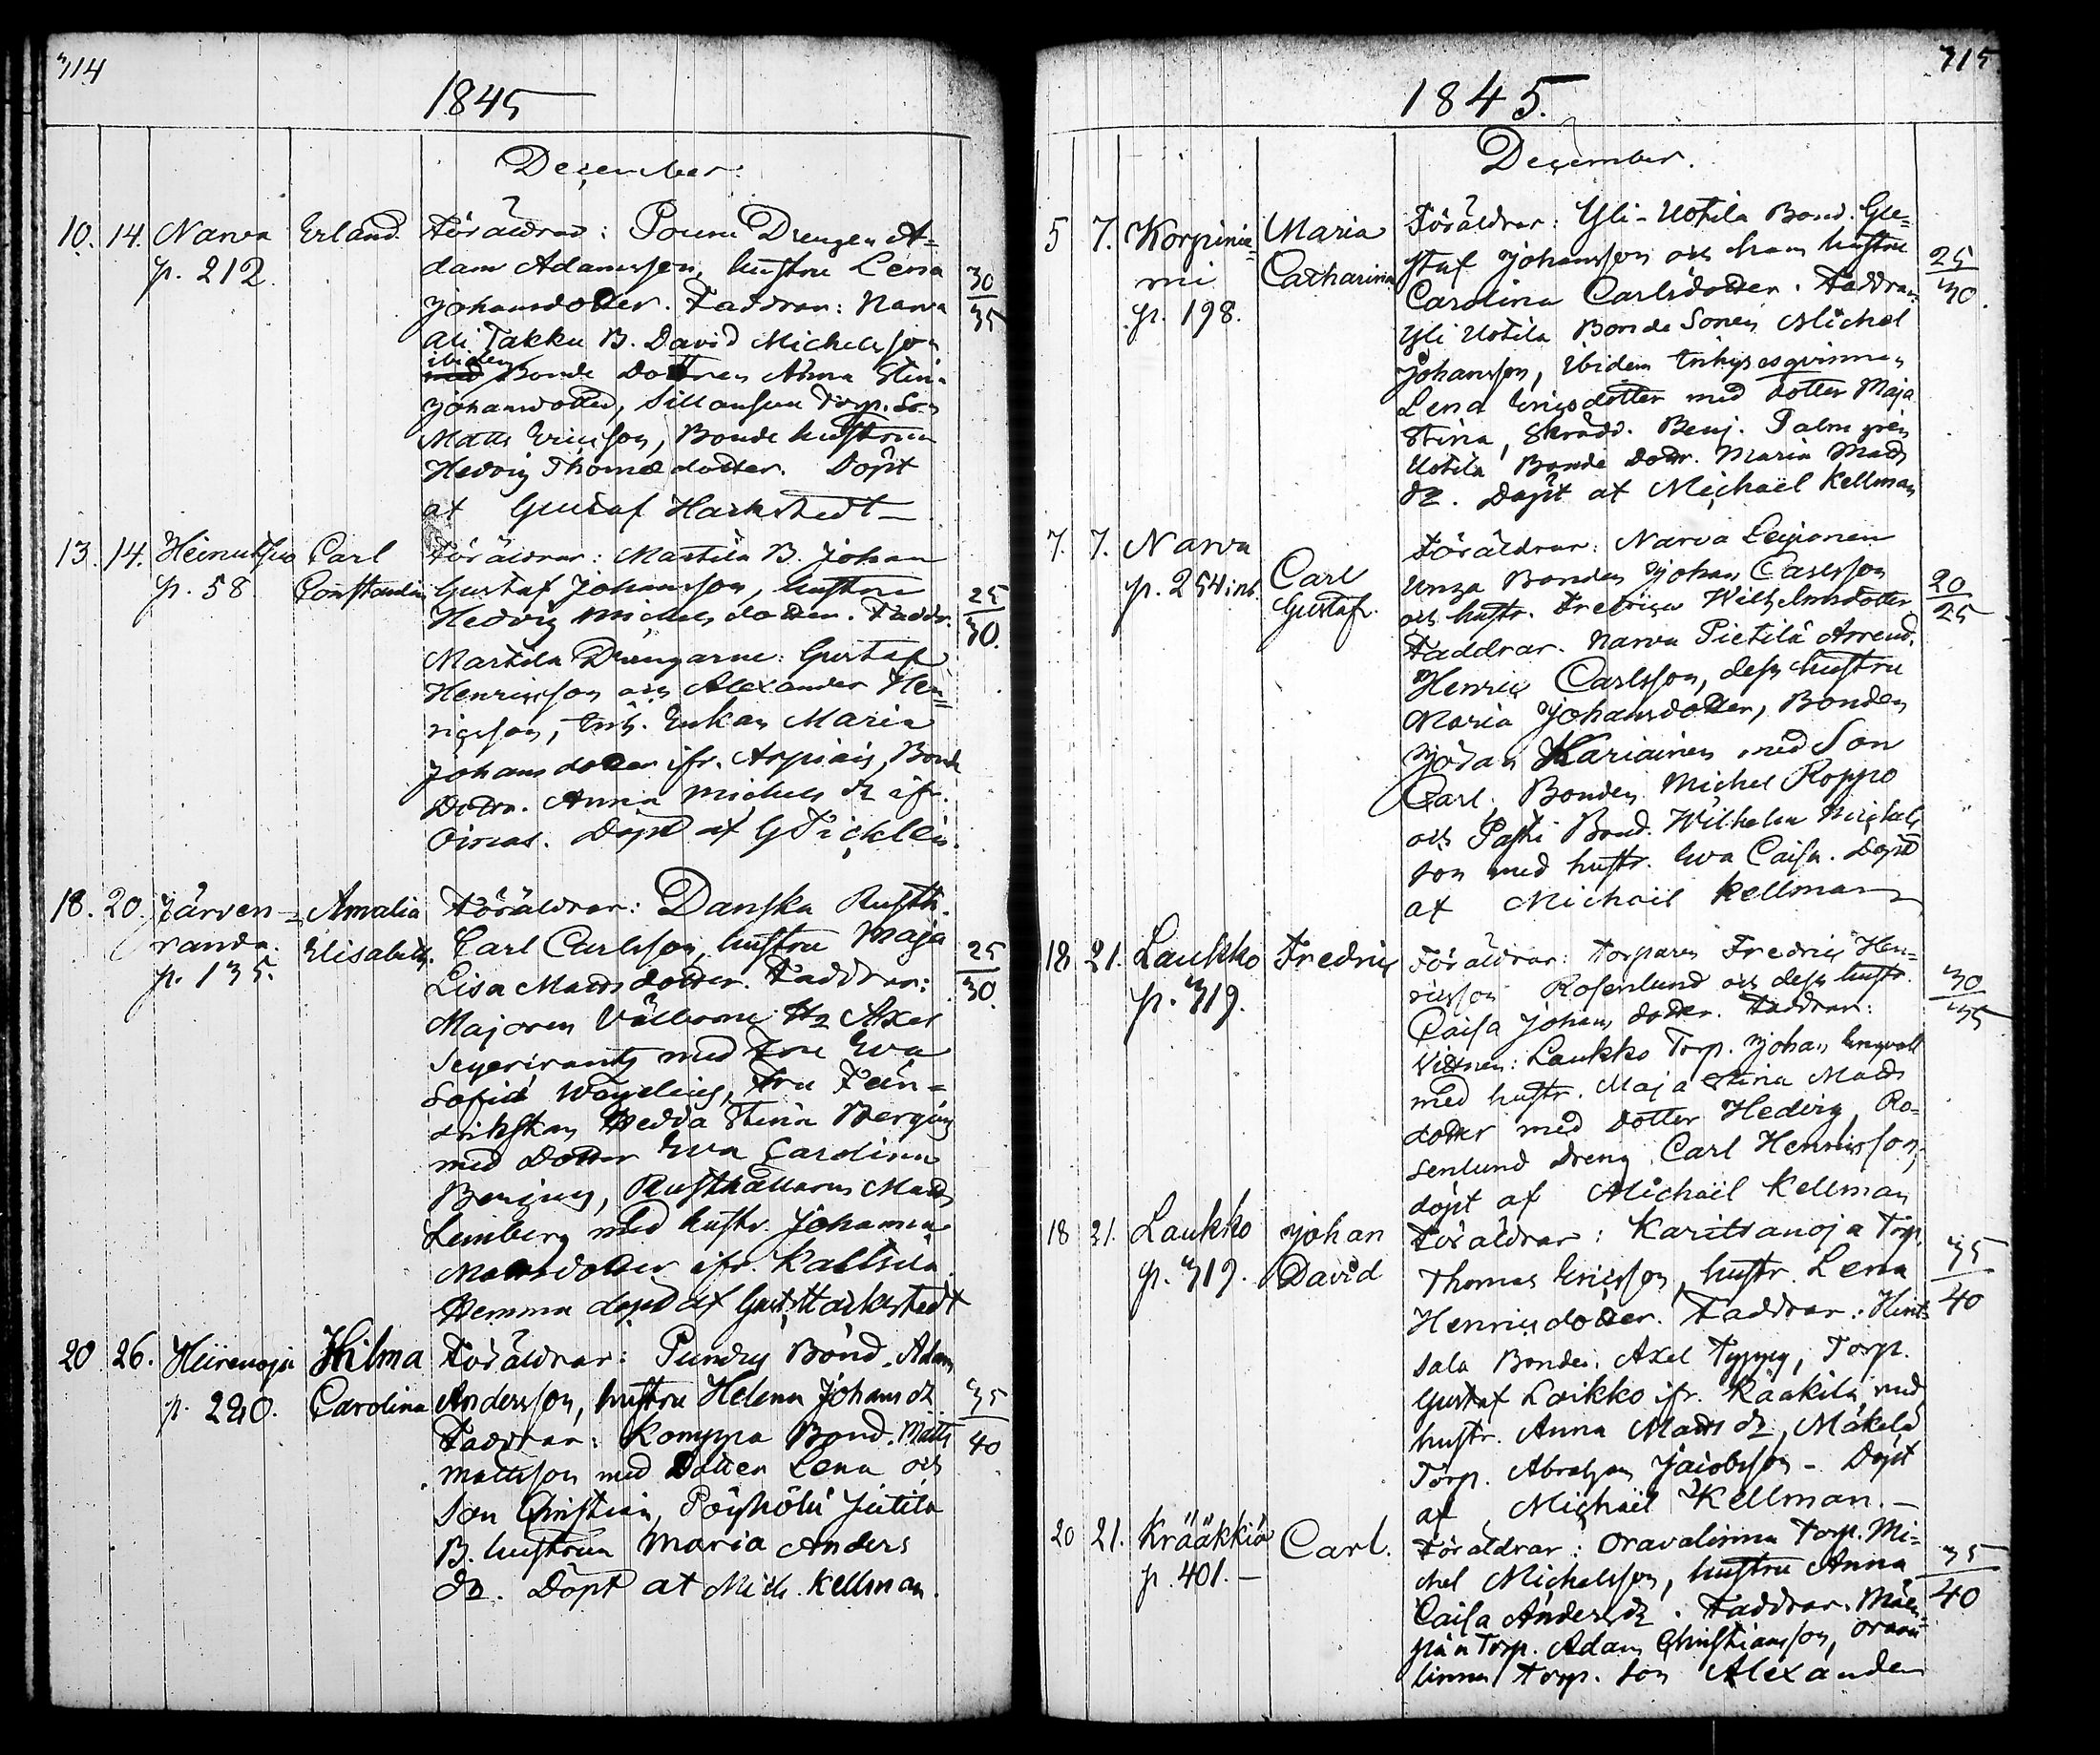 314
1845
December.
10. 14. Narva Erland. Föräldrar: Drengen A-
p. 212. dam Adamsson, hustru Lena
Johansdotter. Faddrar: Narva
30
35
Ali Takku B. David Michelsson
ibidem Bonde Dottren Anna Stina
Johansdotter, Sillansuu Torp. Son
Matts Ericsson, Bonde hustrun
Hedvig Thomædotter. Döpt
af Gustaf Hackstedt
13. 14. Carl Föräldrar: Marttila B. Johan
p. 58. Constantin Gustaf Johansson, hustru
Hedvig Michelsdotter. Faddr.
25
30.
Marttila Drengarne: Gustaf
Henricsson och Alexander Hen=
ricsson, Enkan Maria
Johansdotter ifr. Arpiais, Bonde
Dottr. Anna Michels dr ifr.
Oinas. Döpt af G
18. 20. Järven= Amalia Föräldrar: Danska Rusth.
randa. Elisabeth. Carl Carlsson, hustru Maja
p. 135. Lisa Mattsdotter. Faddrar:
25
30.
Majoren Hr Axel
med Fru Eva
Sofia Fru Fän=
drikskan Hedda Stina
med Dotter Eva Carolina
Rusthållaren Matts
Lemberg med hustr. Johanna
Mattsdotter ifr. Kaltsila.
Hemma döpt af Gust. Hackstedt
20. 26. Hiirenoja Hilma Föräldrar: Bond. Adam
p. 220. Carolina Andersson, hustru Helena Johans dr
35
40
Faddrar: Konyppa Bond. Matts
Mattsson med Dotter Lena och
Son Christian, Pöyhölä Jutila
B. hustrun Maria Anders
dr. Döpt af Mich. Kellman.
315
1845.
December.
5 7. Korpinie= Maria Föräldrar: Yli-Uotila Bond. Gu=
mi Catharina staf Johansson och hans hustru
p. 198. Carolina Carlsdotter. Faddrar:
25
30.
Yli Uotila Bonde Sonen Michel
Johansson, ibidem Inhysesqvinnan
Lena Ericsdotter med dotter Maja
Stina, Skrädd. Benj. Palmgren
Uotila Bonde Dottr. Maria Matts
dr. Döpt af Michaël Kellman
7. 7. Narva Carl Föräldrar: Narva Leijonen
p. 254 Gustaf. Unga Bonden Johan Carlsson
och hustr. Fredrica Wilhelmsdotter
20
25
Faddrar. Narva Pietilä Arrend.
Henric Carlsson, dess hustru
Maria Johansdotter, Bonden
Johan Kariainen med Son
Carl, Bonden Michel Roppo
och Passi Bond. Wilhelm Michels
son med hustr. Eva Caisa. Döpt
af Michaël Kellman
18 21. Laukko Fredric Föräldrar: Torparen Fredric Hen=
p. 319. ricsson Rosenlund och dess hustr.
Caisa Johans dotter. Faddrar:
30
35
Vittnen: Laukko Torp. Johan
med hustr. Maja Stina Matts
dotter med Dotter Hedvig, Ro=
senlund Dreng Carl Henricsson,
döpt af Michaël Kellman
18 21. Laukko Johan Föräldrar: Karitsanoja Torp.
p. 319. David Thomas Ericsson, hustr. Lena
Henricsdotter. Faddrar: Hints
35
40
sala Bonde. Axel Typpy, Torp.
Gustaf Laikko ifr. Kaakila med
hustr. Anna Matts dr, Mäkelä
Torp. Abraham Jacobsson - Döpt
af Michaël Kellman. -
20 21. Krääkkiö Carl. Föräldrar: Oravalinna Torp. Mi=
p. 401. - chel Michelsson, hustru Anna
Caisa Anders dr. Faddrar. Mäen=
35
40
pää Torp. Adam Christiansson, Orava
linna Torp. Son Alexander